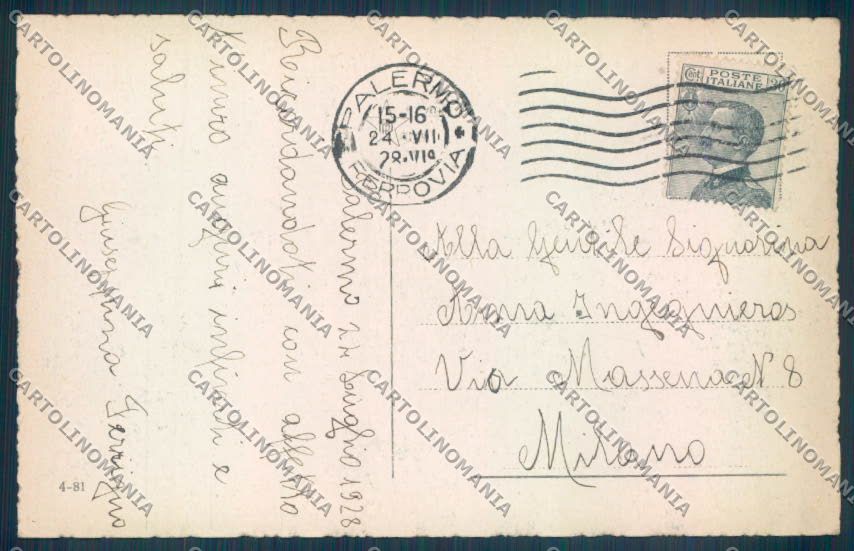 PALERMO
15-16
24 VII
28·VIº
FERROVIA
Cent 30
POSTE
ITALIANE
Palermo 24 Luglio 1928
Ricordandoti con affetto
t'invio auguri infiniti e
saluti
Giuseppina
Alla Gentile Signorina
Anna Ingegnieros
Via Massena N 8
Milano
4-81
CARTOLINOMANIA